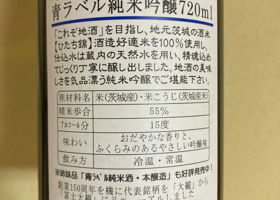 青ラベル純米吟醸720ml
「これぞ地酒」を目指し、地元茨城の酒米
【ひたち錦】酒造好適米を100%使用し、
仕込水は蔵内の天然水を用い、精魂込め
でじっくり丁寧に醸し出しました。地酒の美味
しさと気品漂う純米吟醸でご堪能下さい。
原材料名 米(茨城産)・米こうじ(茨城産)
精米歩合 55%
アルコール分 15度
味わい おだやかな香りと、
ふくらみのあるやさしい吟醸味
飲み方 冷温・常温
※姉妹品「青ラベル純米酒・本醸造」も好評発売中!
創業150周年を機に代表銘柄を「大蔵」から